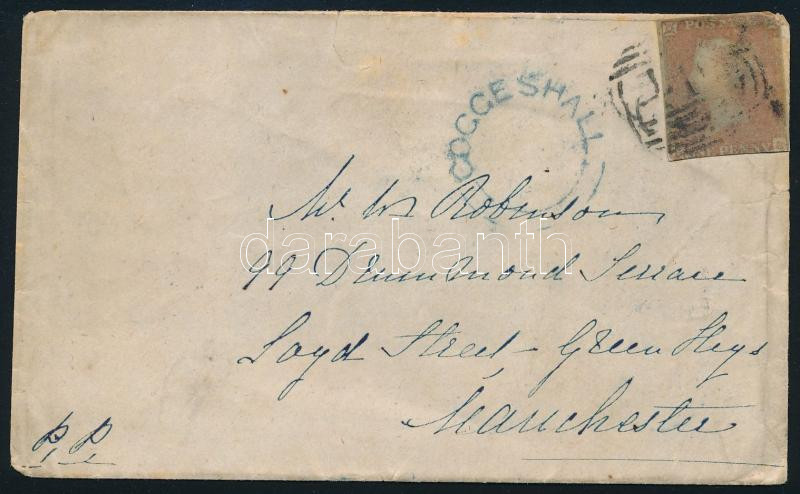 POSTAGE
ONE PENNY
COGGESHALL
Mr. Wm Robinson
darabanth
99 Drummond Terrace
Loyd Street - Green Heys
Manchester
P. P.